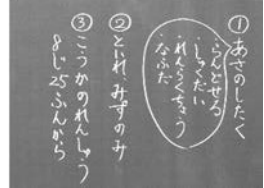 ①あさのしたく
・らんどせる
・しゅくだい
・れんらくちょう
・なふだ
②といれ、みずのみ
③こうかのれんしゅう
8じ25ふんから